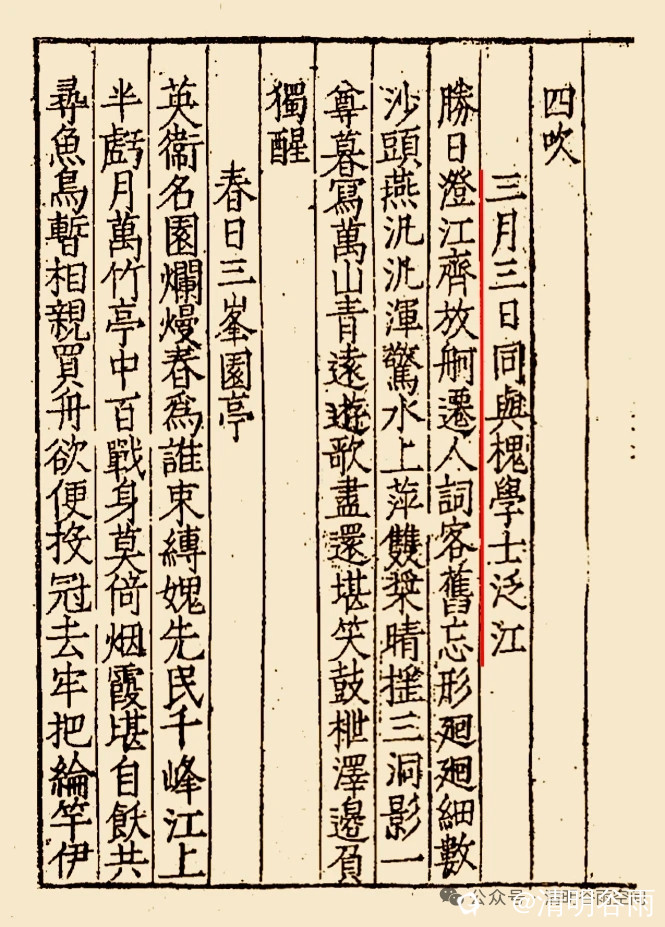 四吹
三月三日同與槐學士泛江
勝日澄江齊放舸遷人詞客舊忘形廻廻細數
沙頭燕汎汎渾驚水上萍雙槳晴搖三洞影一
尊暮寫萬山青遠遊歌盡還堪笑鼓枻澤邊負
獨醒
春日三峯園亭
英衞名園爛熳春為誰束縛媿先民千峰江上
半虧月萬竹亭中百戰身莫倚烟霞堪自飫共
尋魚鳥暫相親買舟欲便投冠去牢把綸竿伊
公众号·清明谷雨空间
@清明谷雨